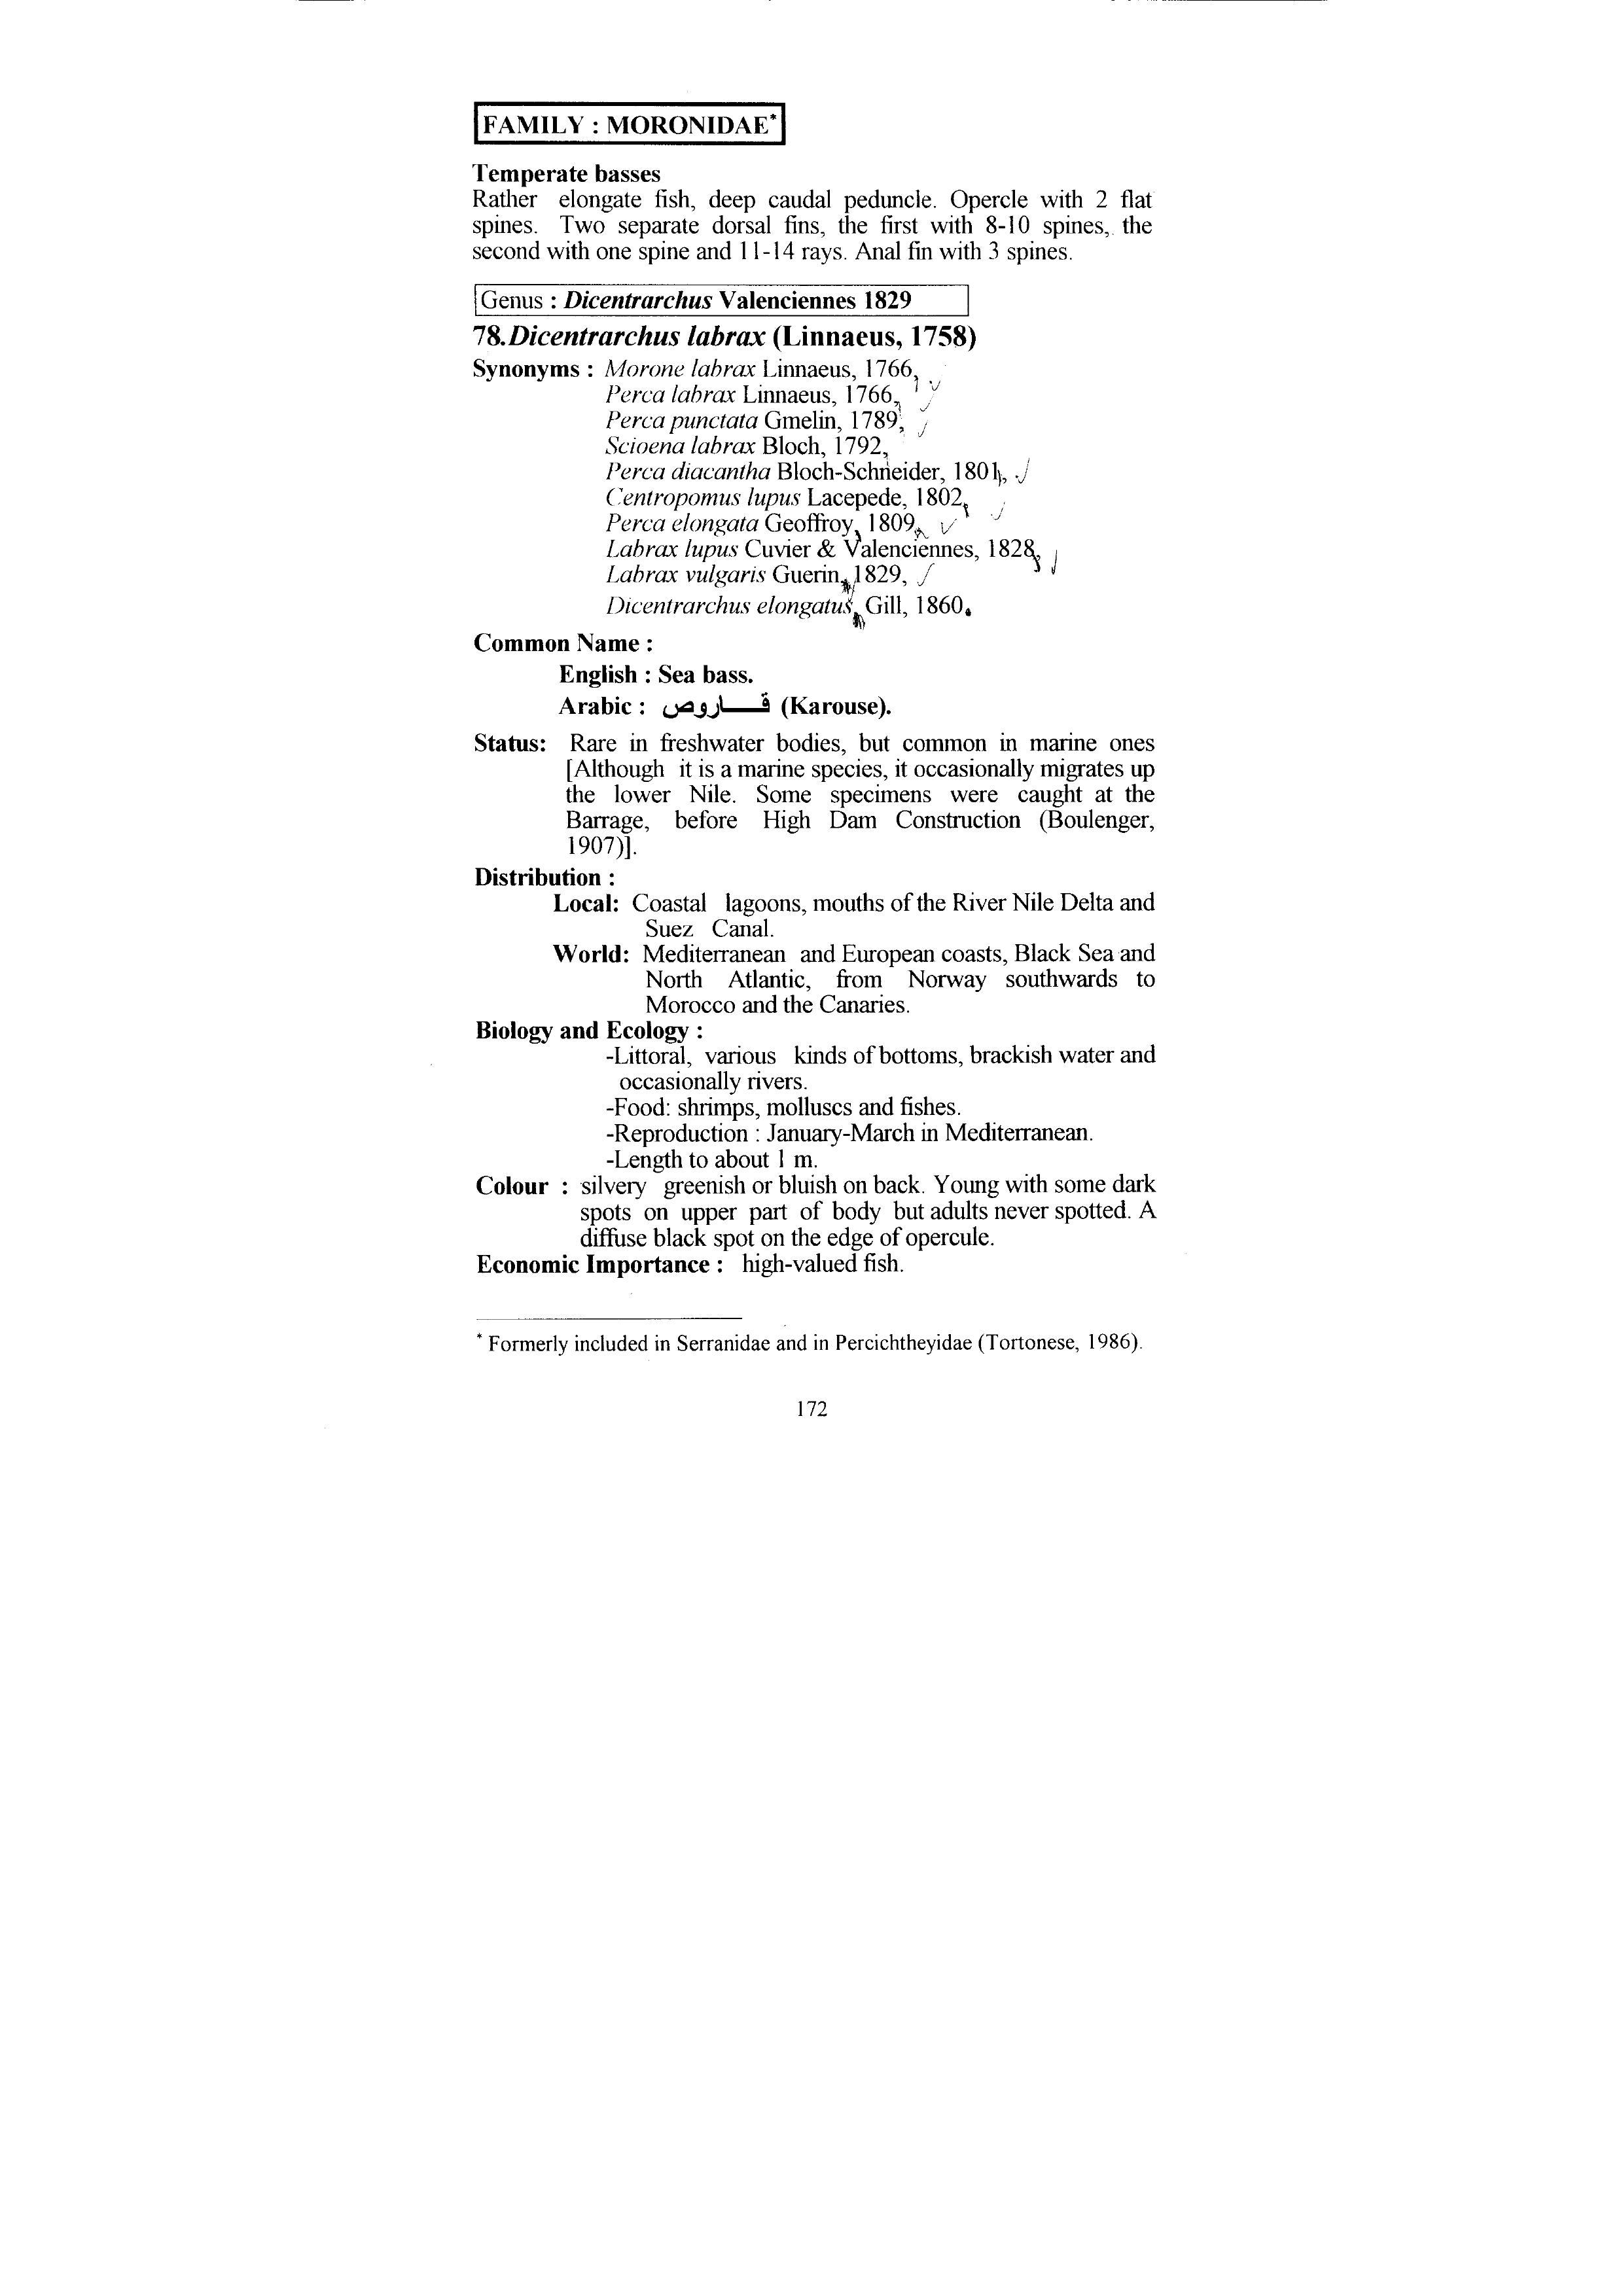 FAMILY : MORONIDAE*
Temperate basses
Rather elongate fish, deep caudal peduncle. Opercle with 2 flat
spines. Two separate dorsal fins, the first with 8-10 spines, the
second with one spine and 11-14 rays. Anal fin with 3 spines.
Genus : Dicentrarchus Valenciennes 1829
78.Dicentrarchus labrax (Linnaeus, 1758)
Synonyms : Morone labrax Linnaeus, 1766,
Perca labrax Linnaeus, 1766,
Perca punctata Gmelin, 1789,
Scioena labrax Bloch, 1792,
Perca diacantha Bloch-Schneider, 1801,
Centropomus lupus Lacepede, 1802,
Perca elongata Geoffroy, 1809,
Labrax lupus Cuvier & Valenciennes, 1828,
Labrax vulgaris Guerin, 1829,
Dicentrarchus elongatus, Gill, 1860.
Common Name :
English : Sea bass.
Arabic : قـــاروص (Karouse).
Status: Rare in freshwater bodies, but common in marine ones
[Although it is a marine species, it occasionally migrates up
the lower Nile. Some specimens were caught at the
Barrage, before High Dam Construction (Boulenger,
1907)].
Distribution :
Local: Coastal lagoons, mouths of the River Nile Delta and
Suez Canal.
World: Mediterranean and European coasts, Black Sea and
North Atlantic, from Norway southwards to
Morocco and the Canaries.
Biology and Ecology :
-Littoral, various kinds of bottoms, brackish water and
occasionally rivers.
-Food: shrimps, molluscs and fishes.
-Reproduction : January-March in Mediterranean.
-Length to about 1 m.
Colour : silvery greenish or bluish on back. Young with some dark
spots on upper part of body but adults never spotted. A
diffuse black spot on the edge of opercule.
Economic Importance : high-valued fish.
* Formerly included in Serranidae and in Percichtheyidae (Tortonese, 1986).
172